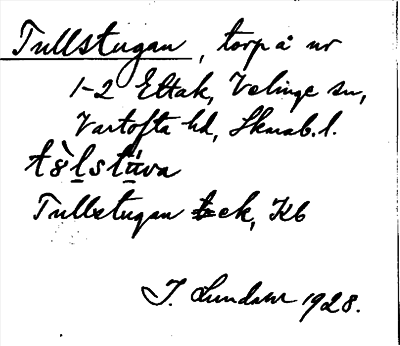 Tullstugan, torp å nr
1-2 Ettak, Velinge sn,
Vartofta hd, Skarab. l.
Tullstugan ek, Kb
J. Lundahl 1928.